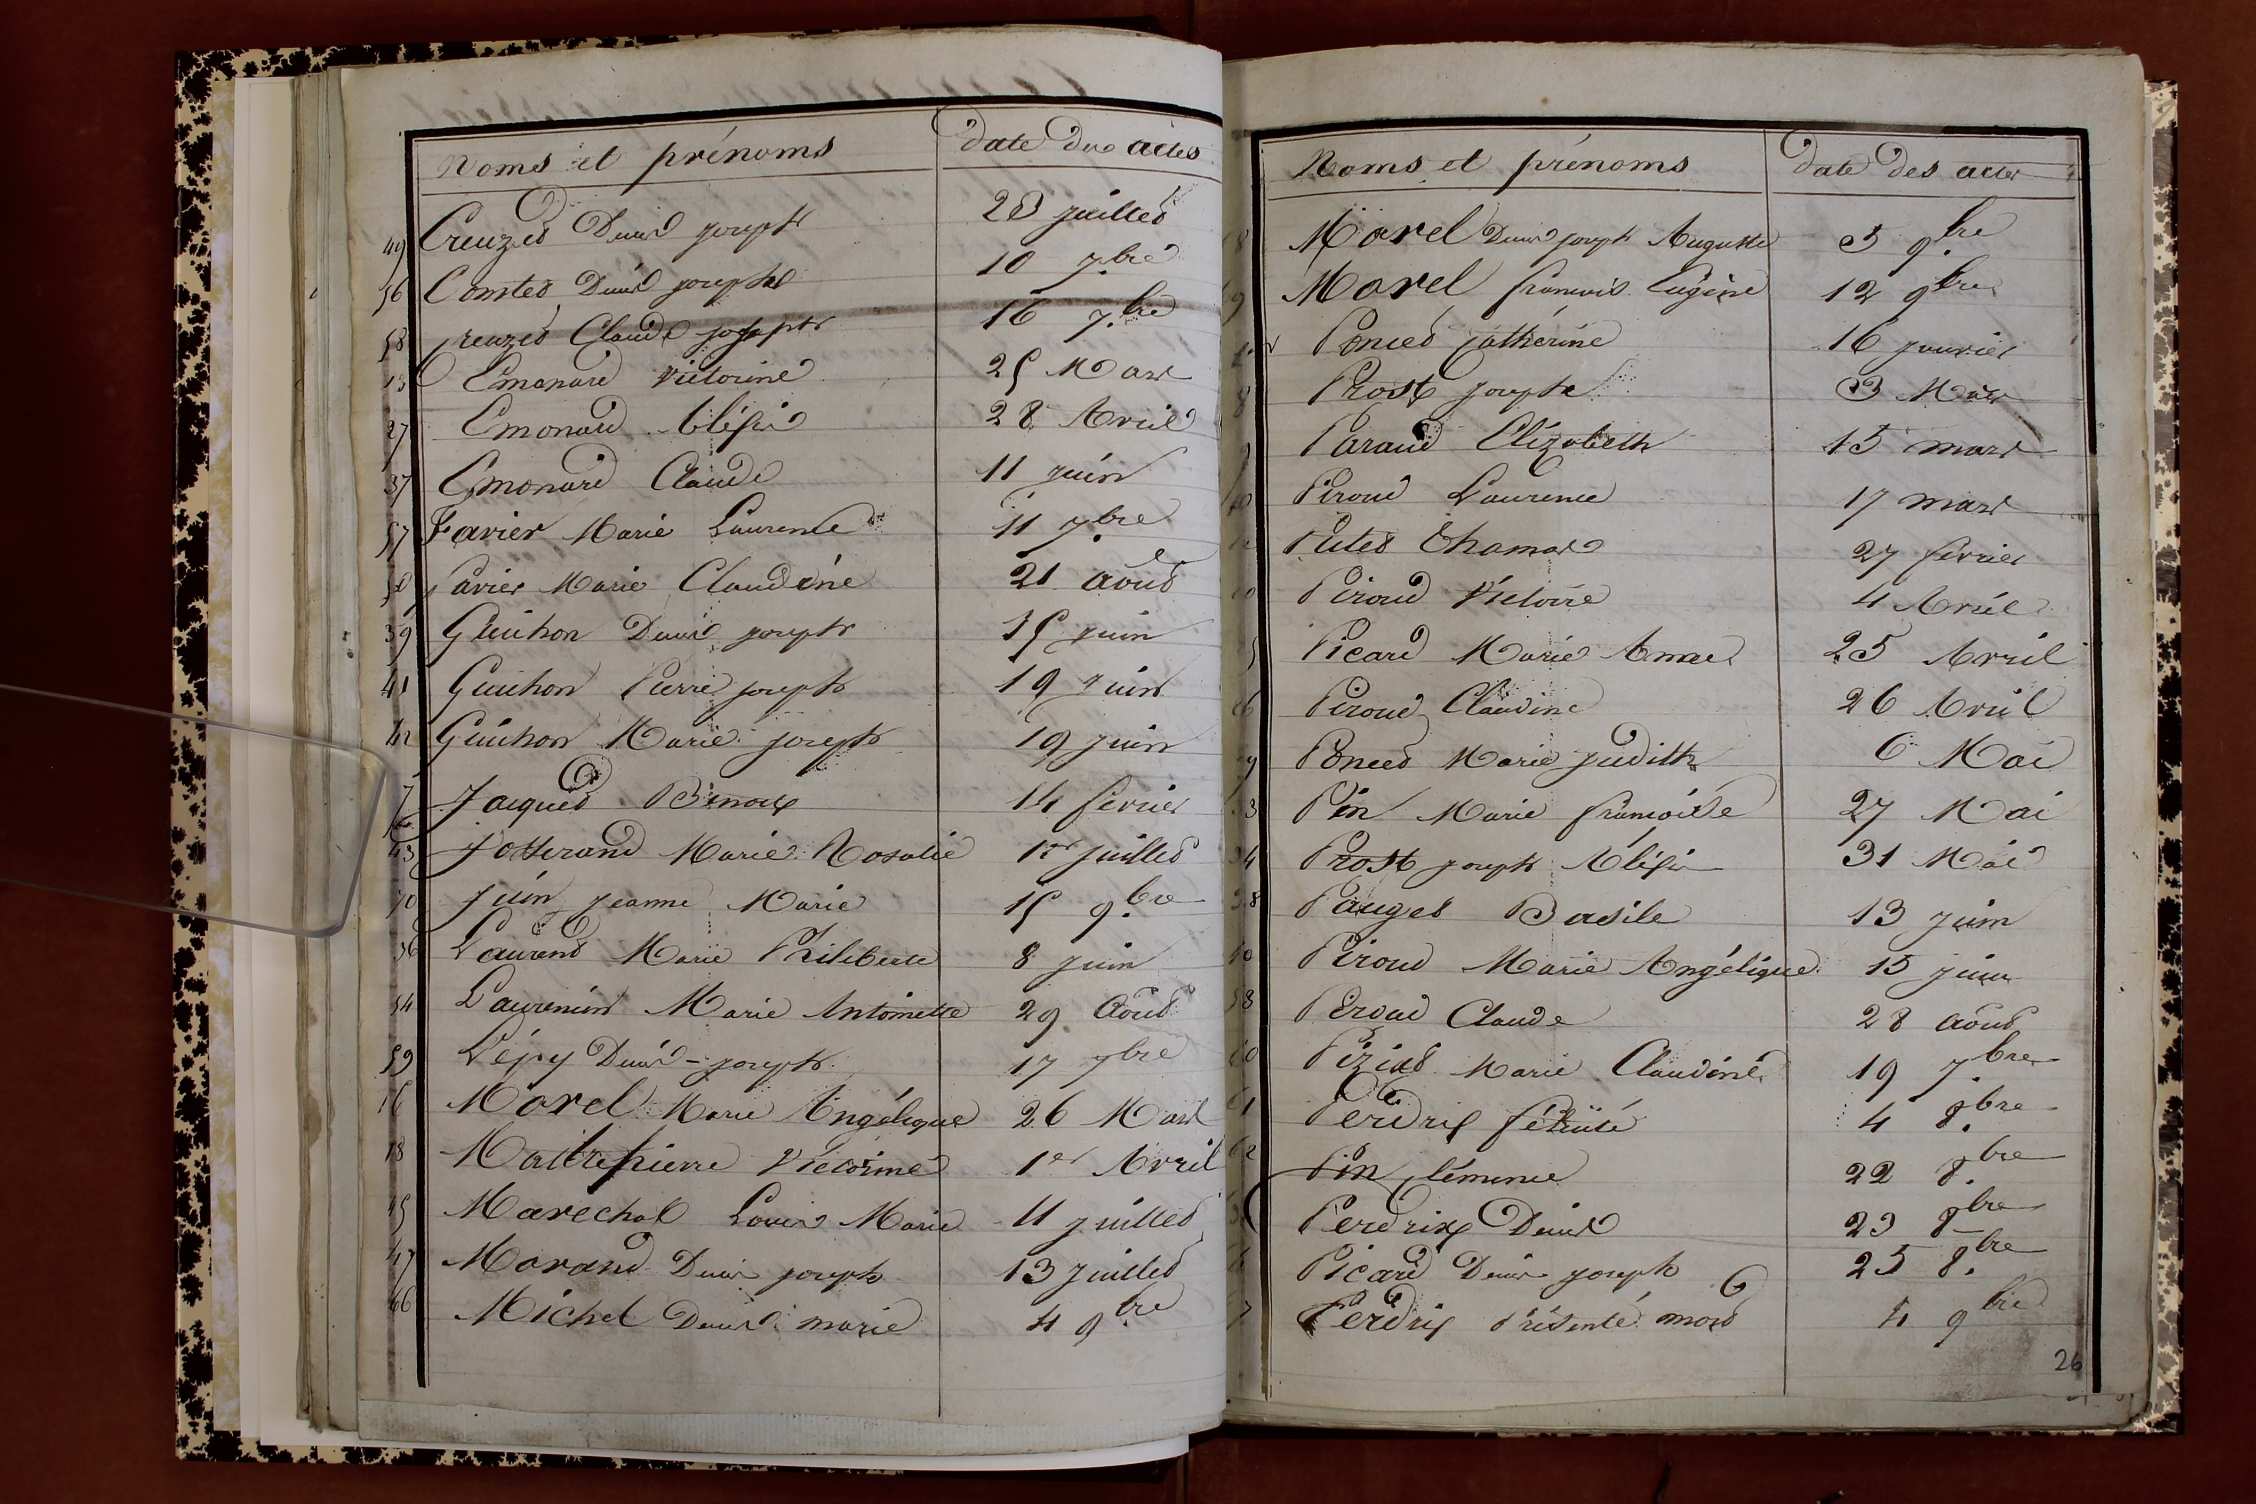 Noms et prénoms date des actes
49 Creuzet Denis joseph 23 juillet
56 Comtet Denis joseph 10 7.bre
58 Creuzet Claude joseph 16 7.bre
13 Emonard Victorine 25 Mars
27 Emonard Aléxis 28 Avril
37 Emonard Claude 11 juin
57 Favier Marie Laurence 11 7.bre
Favier Marie Claudine 21 août
39 Guichon Denis joseph 15 juin
41 Guichon Pierre joseph 19 juin
42 Guichon Marie joseph 19 juin
7 Jacquet Benoit 14 février
43 Jotterand Marie Rosalie 1er juillet
70 Juin jeanne Marie 15 9.bre
36 Laurent Marie Philiberte 8 juin
54 Laurencin Marie Antoinette 29 Août
59 Lépy Denis-joseph 17 7bre
16 Morel Marie Angélique 26 Mars
18 Maitrepierre Victorine 1er Avril
45 Marechal Louis Marie 11 juillet
47 Morand Denis joseph 13 juillet
66 Michel Denis marie 4 9.bre
Noms et prénoms date des actes
8 Morel Denis joseph Auguste 3 9.bre
9 Morel francois Eugène 12 9bre
Poncet Catherine 16 janvier
8 Prost joseph 3 Mars
9 Paraud Elizabeth 15 mars
10 Piroud Laurence 17 mars
Putet Thomas 27 février
20 Piroud Victoire 4 Avril
5 Picard Marie Anne 25 Avril
26 Piroud Claudine 26 Avril
9 Poncet Marie judith 6 Mai
33 Pin Marie françoise 27 Mai
34 Prost joseph Aléxis 31 Mai
38 Pauget Basile 13 juin
40 Piroud Marie Angélique 15 juin
58 Piroud Claude 28 août
60 Marie Claudine 19 7.bre
61 Perdrix félicité 4 8.bre
62 Pin Clémence 22 8.bre
Perdrix Denis 23 8bre
Picard Denis joseph 25 8.bre
7 Perdrix Présenté mort 4 9bre
26